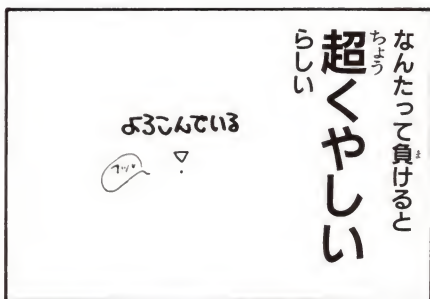 なんたって負けると
超くやしい
らしい
よろこんでいる